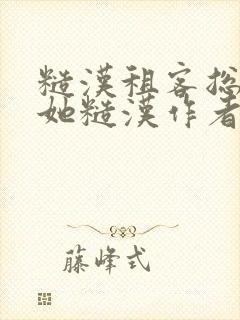 糙漢租客总
她糙漢作者
藤峰式